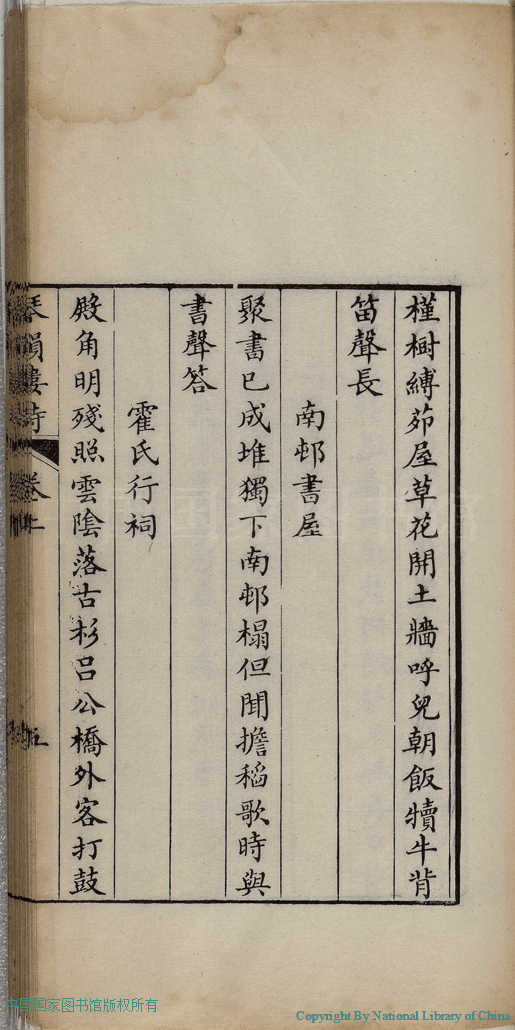 槿樹縛茆屋草花開土牆呼兒朝飯犢牛背
笛聲長
南邨書屋
聚書已成堆獨下南邨榻但聞擔稻歌時與
書聲答
霍氏行祠
殿角明殘照雲陰落古杉呂公橋外客打鼓
琴韻樓詩 卷上
五
中国国家图书馆版权所有
Copyright By National Library of China